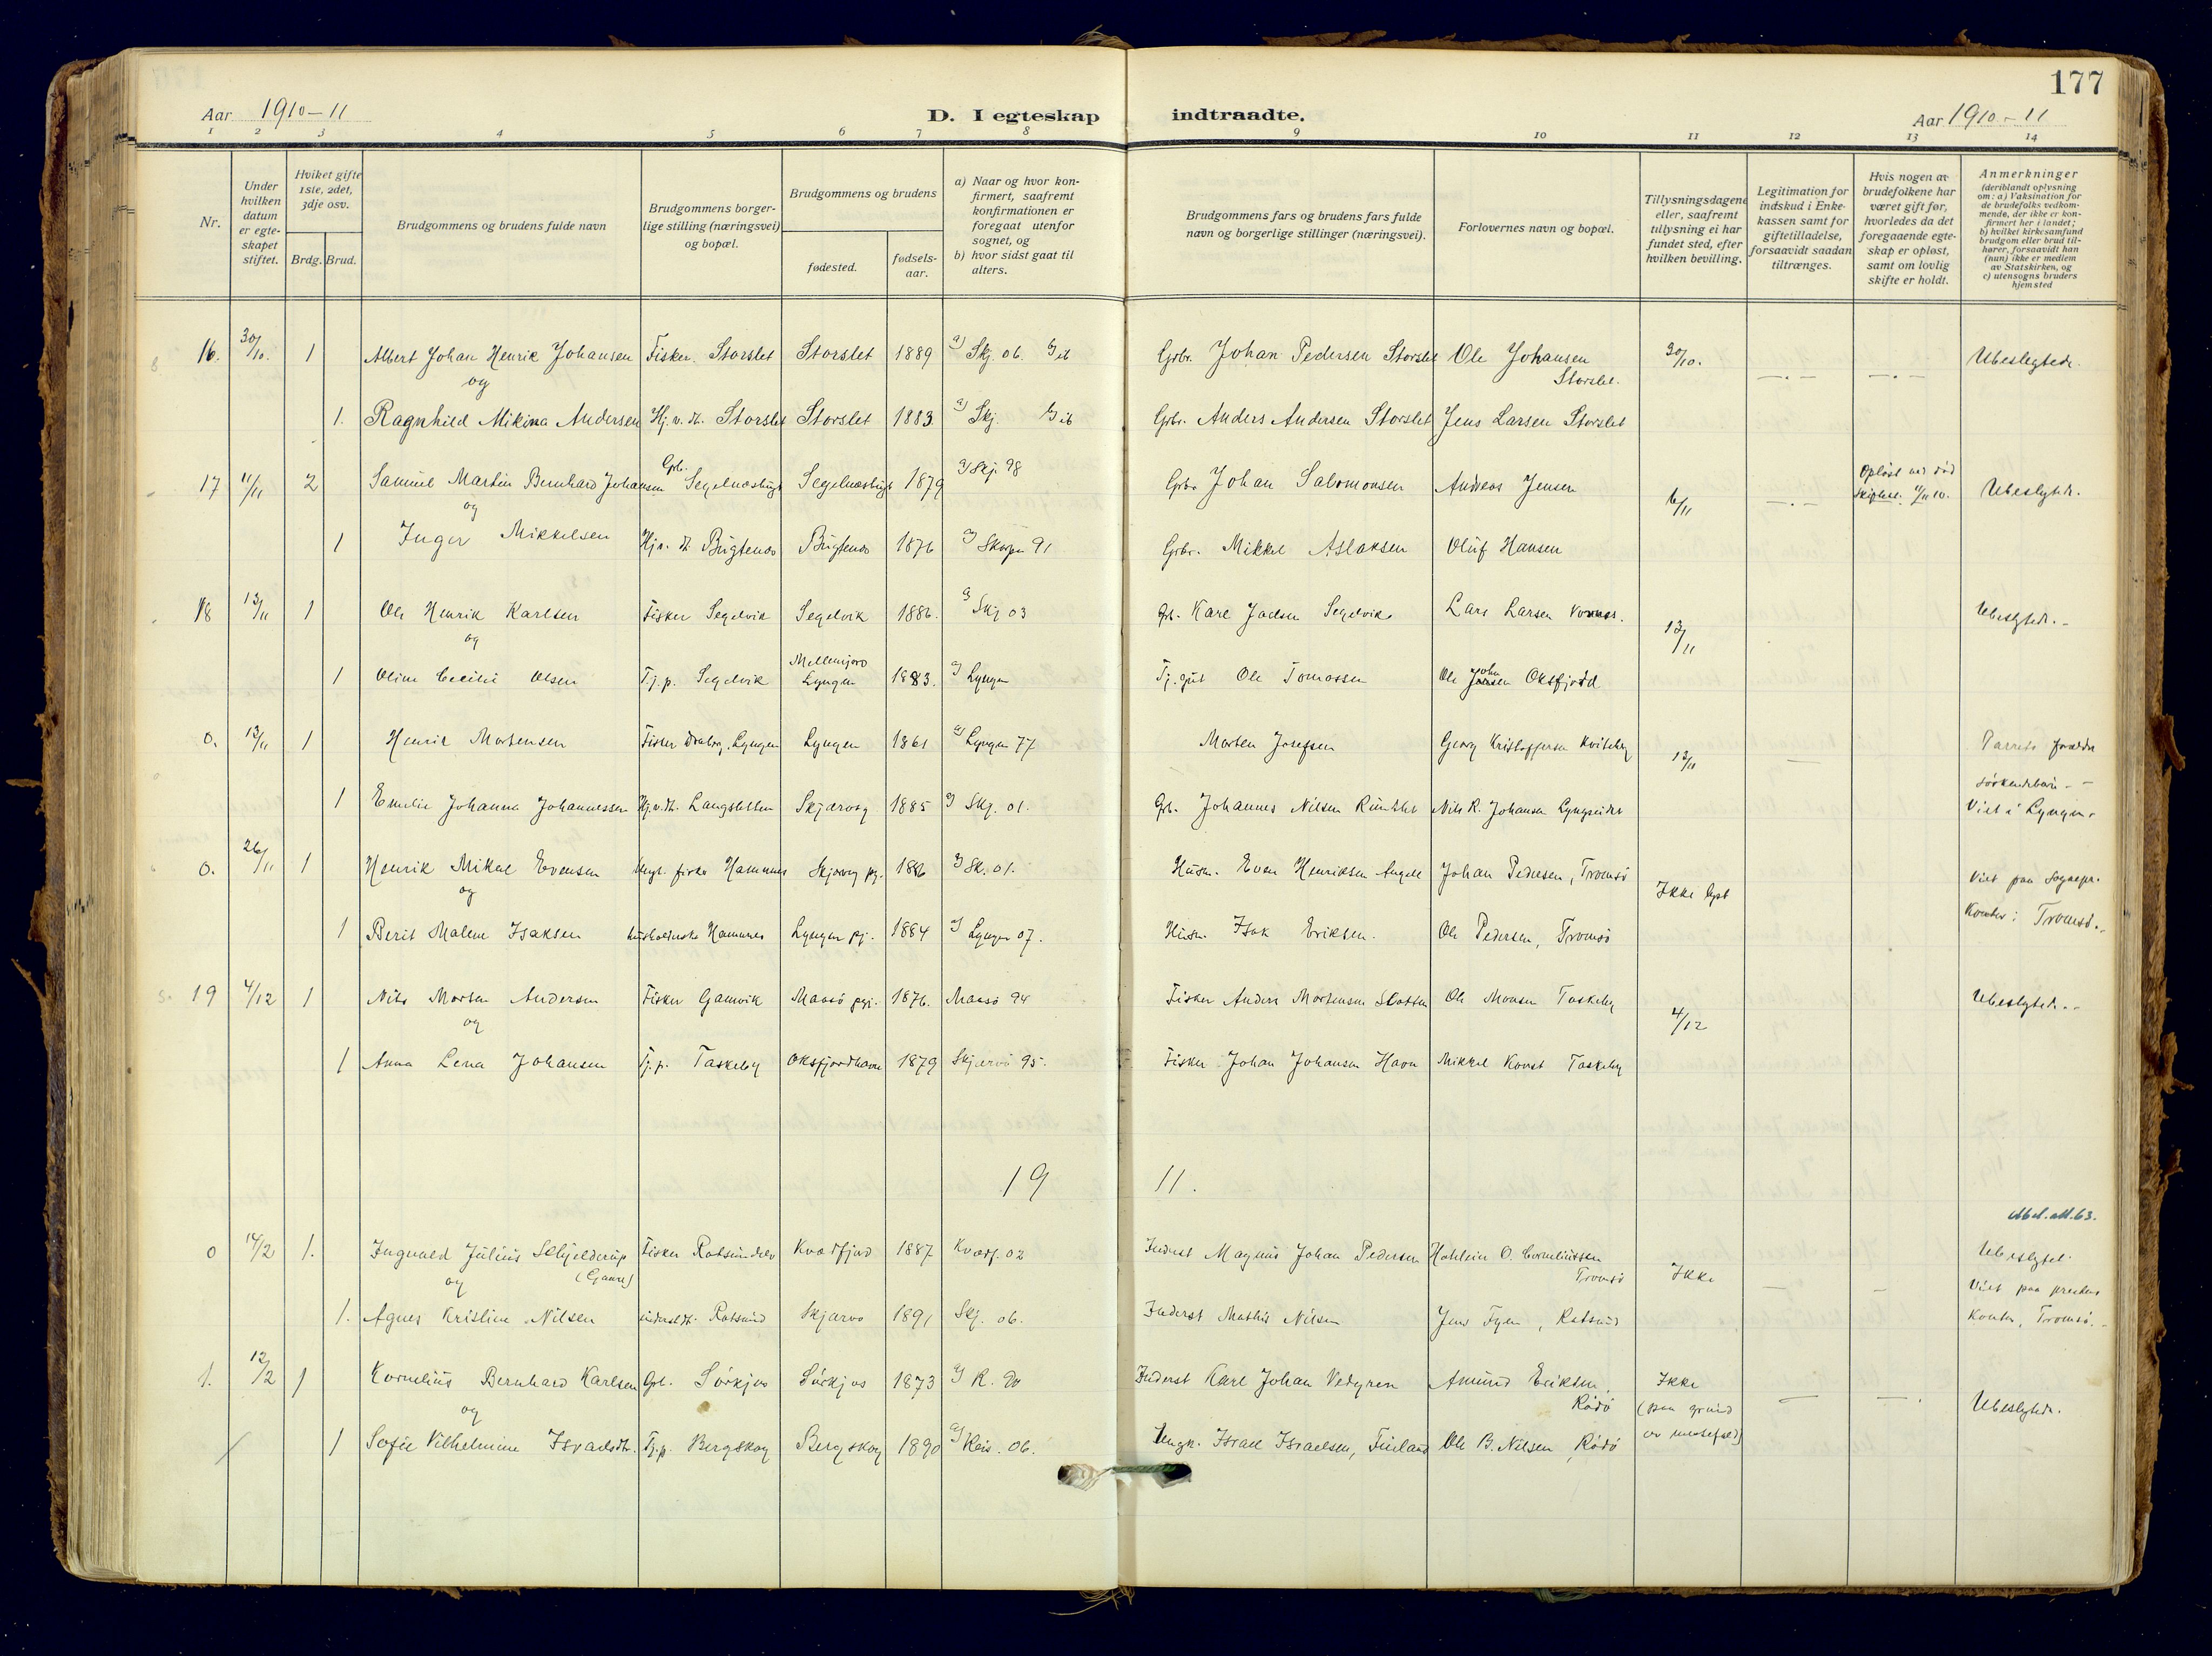 177
Aar 1910-11
D. I egteskap indtraadte.
Aar 1910-11
1 2 3 4 5 6 7 8 9 10 11 12 13 14
Nr.
Under hvilken datum er egteskapet stiftet.
Hviket gifte 1ste, 2det, 3dje osv.
Brdg. Brud.
Brudgommens og brudens fulde navn
Brudgommens borgerlige stilling (næringsvei) og bopæl.
Brudgommens og brudens
fødested.
fødselsaar.
a) Naar og hvor konfirmert, saafremt konfirmationen er foregaat utenfor sognet, og
b) hvor sidst gaat til alters.
Brudgommens fars og brudens fars fulde navn og borgerlige stillinger (næringsvei).
Forlovernes navn og bopæl.
Tillysningsdagene eller, saafremt tillysning ei har fundet sted, efter hvilken bevilling.
Legitimation for indskud i Enkekassen samt for giftetilladelse, forsaavidt saadan tiltrænges.
Hvis nogen av brudefolkene har været gift før, hvorledes da det foregaaende egteskap er opløst, samt om lovlig skifte er holdt.
Anmerkninger
(deriblandt oplysning om: a) Vaksination for de brudefolks vedkommende, der ikke er konfirmert her i landet;
b) hvilket kirkesamfund brudgom eller brud tilhører, forsaavidt han (hun) ikke er medlem av Statskirken, og
c) utensogns bruders hjemsted
16. 30/10. 1 Albert Johan Henrik Johansen Fisker. Storslet Storslet 1889 a) Skj. 06. Grbr. Johan Pedersen Storslet Ole Johansen Storslet. 30/10. —.— —.— Ubeslegtede.
og
1. Ragnhild Mikina Andersen Hj.v. dt. Storslet Storslet 1883 a) Skj. Grbr. Anders Andersen Storslet Jens Larsen Storslet
17 11/11 2 Samuel Martin Bernhard Johansen Grb. Segelnæsbugt Segelnæsbugt 1879 a) Skj. 98 Grbr Johan Salomonsen Andreas Jensen 6/11 —.— Opløst ved død Ubeslegtede.
og
1 Inger Mikkelsen Hj.v. dt. Bugtenes Bugtenes 1876 a) 91 Grbr. Mikkel Aslaksen Oluf Hansen
18 13/11 1 Ole Henrik Karlsen Fisker Segelvik Segelvik 1886. a) Skj 03 Grb. Karl Segelvik Lars Larsen 13/11 Ubeslegtede.-
og
1 Oline Cecilie Olsen Tj.p. Segelvik Lyngen 1883. a) Lyngen Tj.gut Ole Tomassen Ole Oksfjord
0. 13/11 1 Henrik Mortensen Fisker Lyngen Lyngen 1861 a) Lyngen 77 Morten Josefsen Georg Kristoffersen Kviteberg 13/11 — Parrets forældre søskendebarn.-
1 Emelie Johanna Johannessen Hj.v.dt. Langsletten Skjærvøy 1885 a) Skj. 01. Grb. Johannes Nilsen Nils R. Johansen Lyngseidet Viet i Lyngen.
0. 26/11 1 Henrik Mikal Evensen Ungk. fisker Hamnnes Skjervøy pgj. 1886 a) Sk. 01. Husm. Even Henriksen Johan Pedersen, Tromsø Ikke lyst Viet paa sognepr.
og
1 Berit Malene Isaksen Hamnnes Lyngen pgj. 1884 a) Lyngen 07. Husm. Isak Eriksen. Ole Pedersen, Tromsø Kontor i Tromsø.
19 4/12 1 Nils Morten Andersen Fisker Gamvik Maasø pgj. 1876. Maasø 94 Fisker Anders Mortensen Ole Monsen Taskeby 4/12 Ubeslegtede.-
og
1 Anna Lena Johansen Tj.p. Taskeby Oksfjordhavn 1879 Skjervø 95. Fisker Johan Johansen Havn Mikkel Taskeby
1911.
0 14/2 1. Ingvald Julius Schjelderup (Gaare) Fisker Kvædfjord 1887 Kvædf. 02 Inderst Magnus Johan Pedersen O. Corneliussen Tromsø Ikke — — Ubeslegtet
og
1. Agnes Kristine Nilsen inderstdt. Rotsund Skjærvø 1891 Skj. 06. Inderst Mathis Nilsen Jens Fyen, Rotsund Viet paa prestens Kontor, Tromsø.-
1. 12/2 1 Kornelius Bernhard Karlsen Grb. Sørkjos Sørkjos 1873 a) R. 90 Inderst Karl Johan Vedgren Amund Eriksen, Rødø Ikke (paa grund av messefald) — —.— Ubeslegtede.
og
1 Sofie Vilhelmine Israelsdtr. Tj.p. Bergskog Bergskog 1890 a) Reis. 06. Ungk. Israel Israelsen, Finland Ole B. Nilsen, Rødø